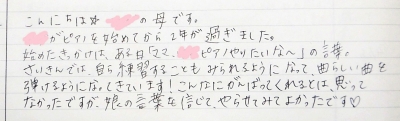 こんにちは☆ の母です。
がピアノを始めてから2年が過ぎました。
始めたきっかけは、ある日「ママ、ピアノやりたいな〜」の言葉。
さいきんでは、自ら練習することもみられるようになって、曲らしい曲を
弾けるようになってきています!こんなにがんばってくれるとは、思って
なかったですが、娘の言葉を信じて、やらせてみてよかったです♡